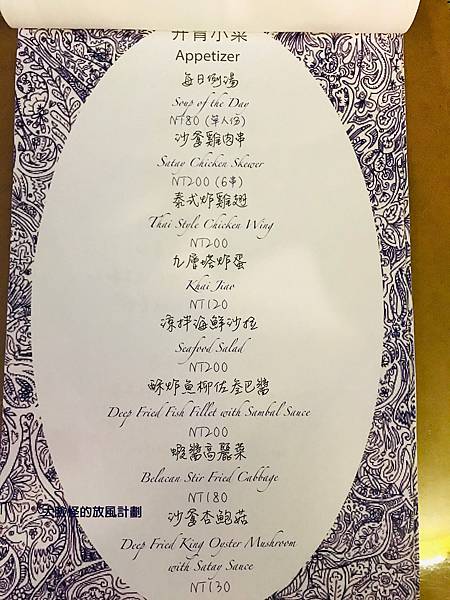 開胃小菜
Appetizer
每日例湯
Soup of the Day
NT80 (單人份)
沙爹雞肉串
Satay Chicken Skewer
NT200 (6串)
泰式炸雞翅
Thai Style Chicken Wing
NT200
九層塔炸蛋
Khai Jiao
NT120
涼拌海鮮沙拉
Seafood Salad
NT200
酥炸魚柳佐叁巴醬
Deep Fried Fish Fillet with Sambal Sauce
NT200
蝦醬高麗菜
Belacan Stir Fried Cabbage
NT180
沙爹杏鮑菇
Deep Fried King Oyster Mushroom
with Satay Sauce
NT130
大眼怪的放風計劃